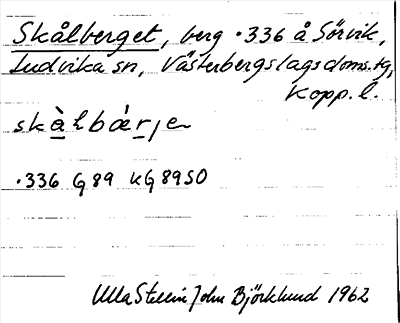 Skålberget, berg ·336 å Sörvik,
Ludvika sn, Västerbergslags doms.tg,
Kopp. l.
skàlbárjer
·336 G 89 KG 89 SO
Ulla Stellin John Björklund 1962